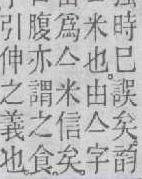 時巳誤矣。韵
米也。由亼字
爲亼米信矣。
腹亦謂之食。
引伸之義也。